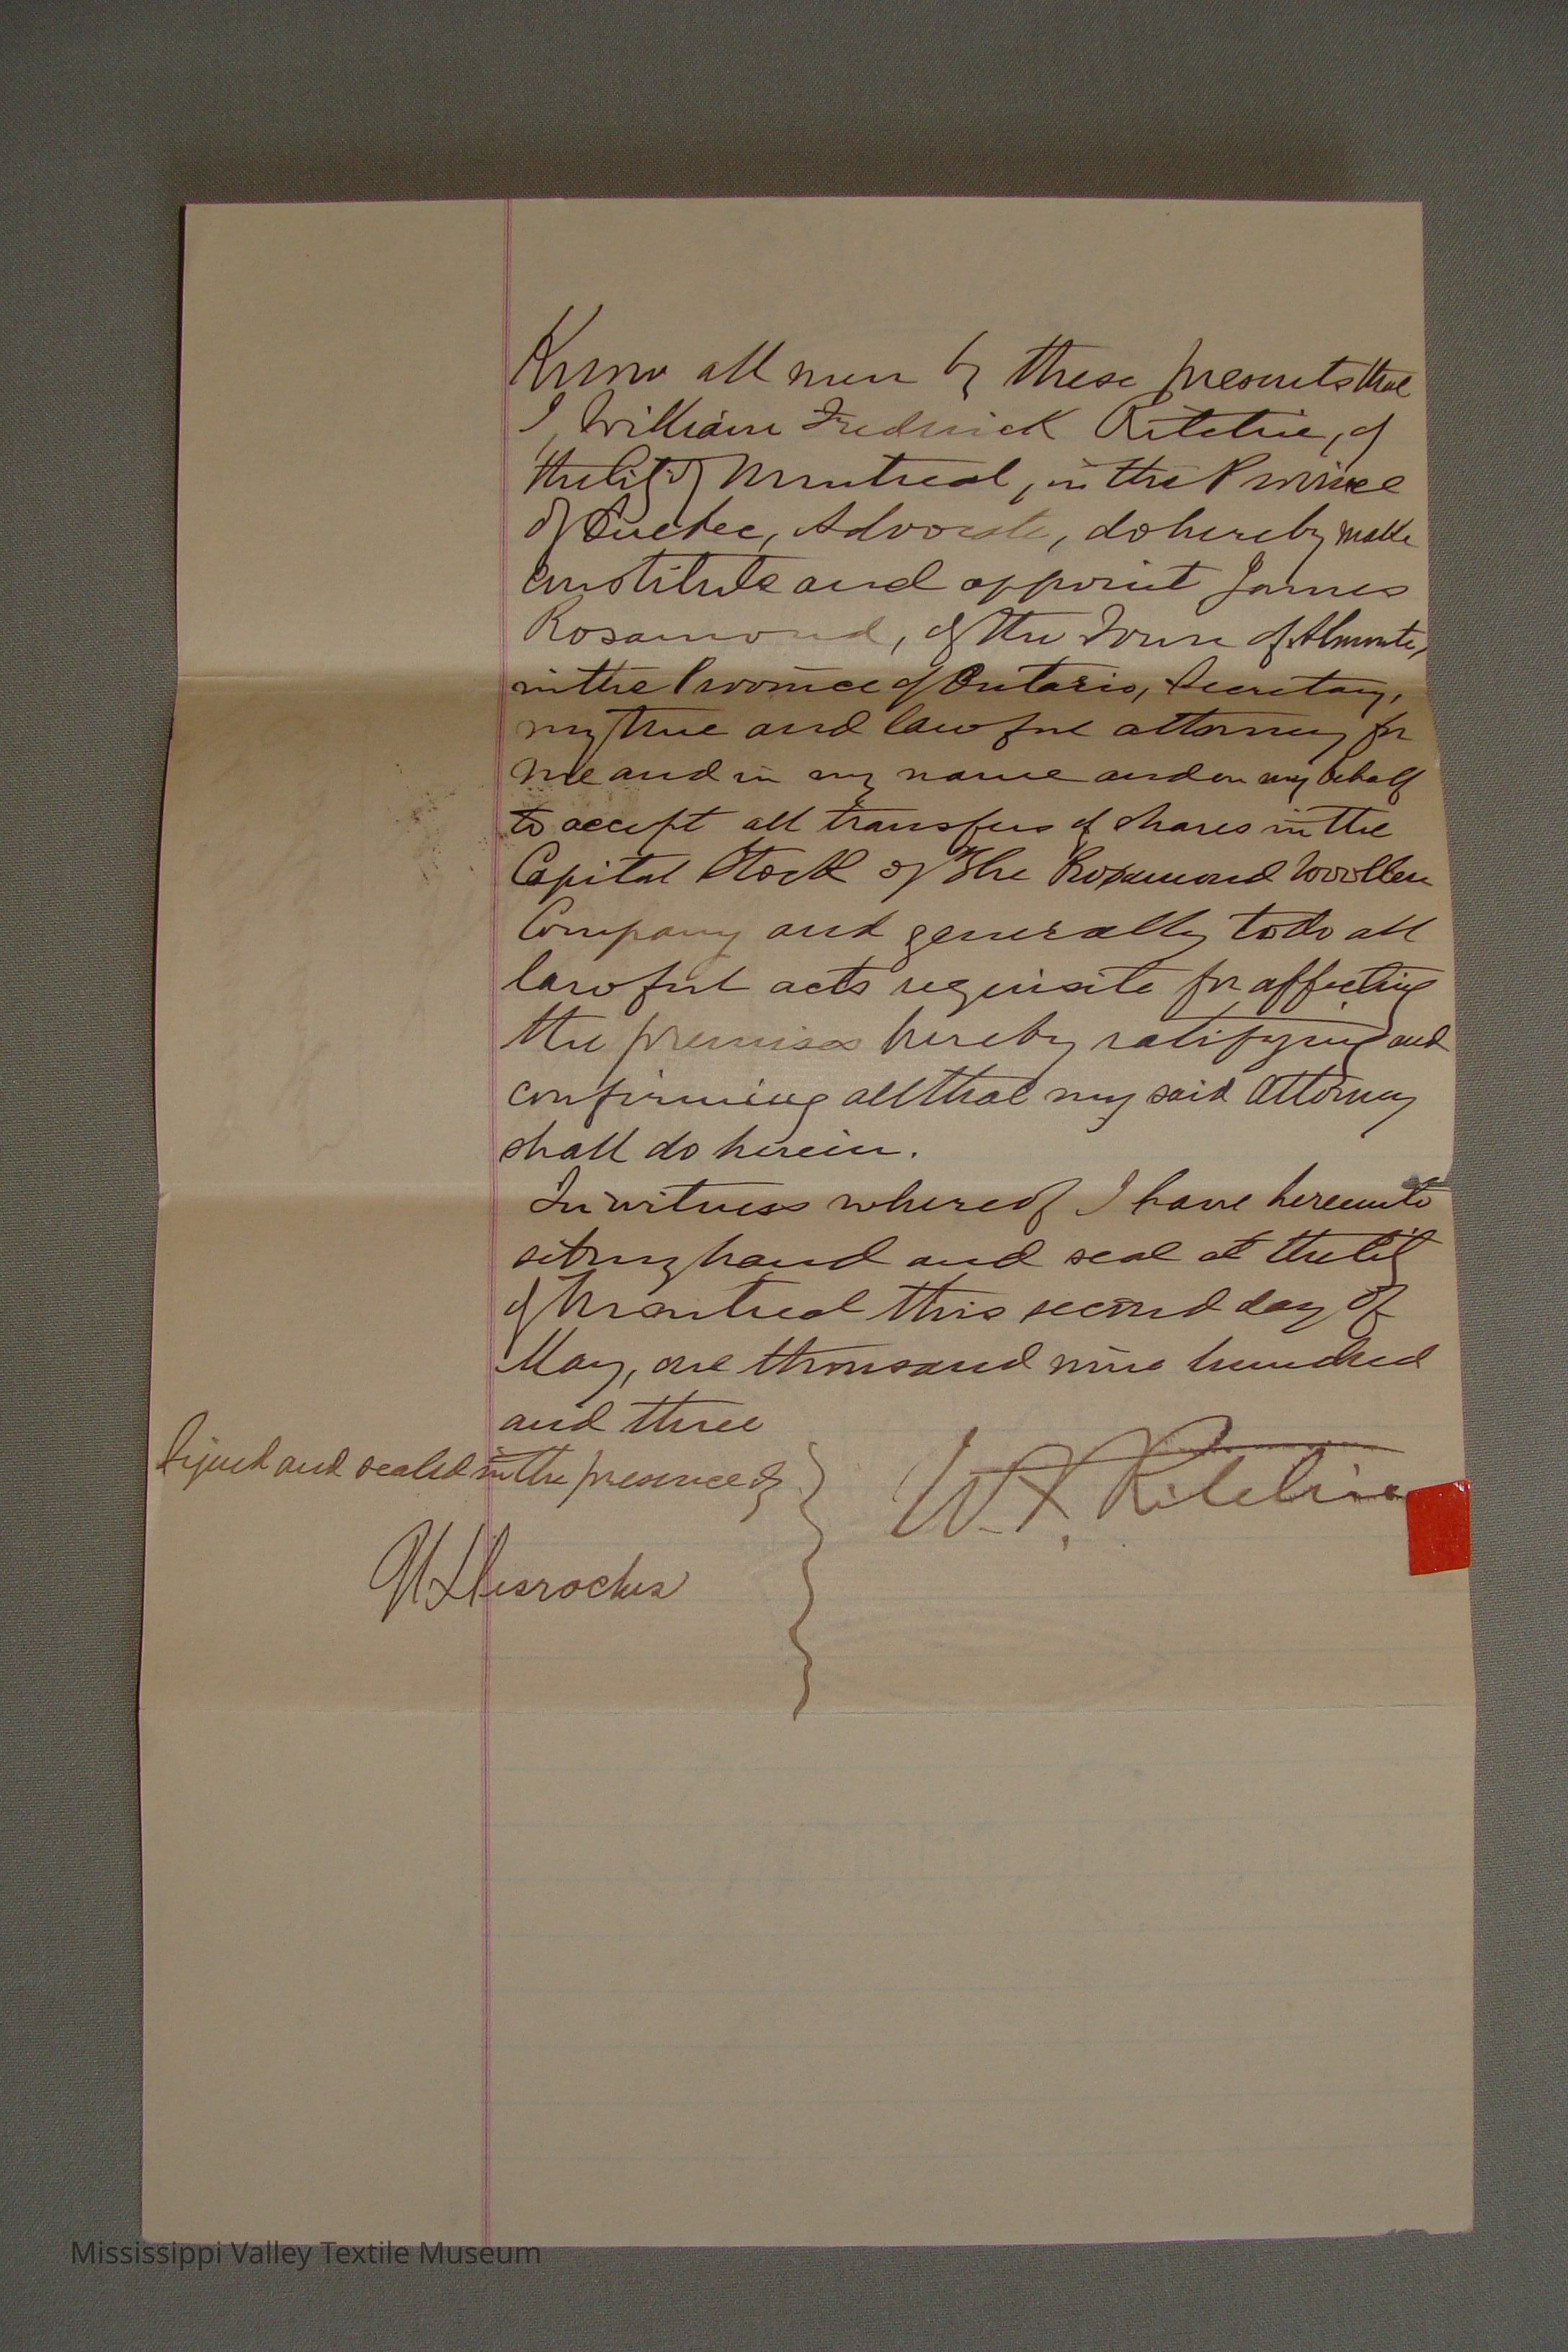 Know all men by these presents that
I, William Frederick Ritchie, of
the City of Montreal, in the Province
of Quebec, Advocate, do hereby make
constitute and appoint James
Rosamond, of the Town of Almonte,
in the Province of Ontario, Secretary,
my true and lawful attorney for
me and in my name and on my behalf
to accept all transfers of shares in the
Capital Stock of The Rosamond Woollen
Company and generally to do all
lawful acts requisite for affecting
the premises hereby ratifying and
confirming all that my said attorney
shall do herein.
In witness whereof I have hereunto
set my hand and seal at the City
of Montreal this second day of
May, one thousand nine hundred
and three
Signed and sealed in the presence of
W. F. Ritchie
Desroches
Mississippi Valley Textile Museum